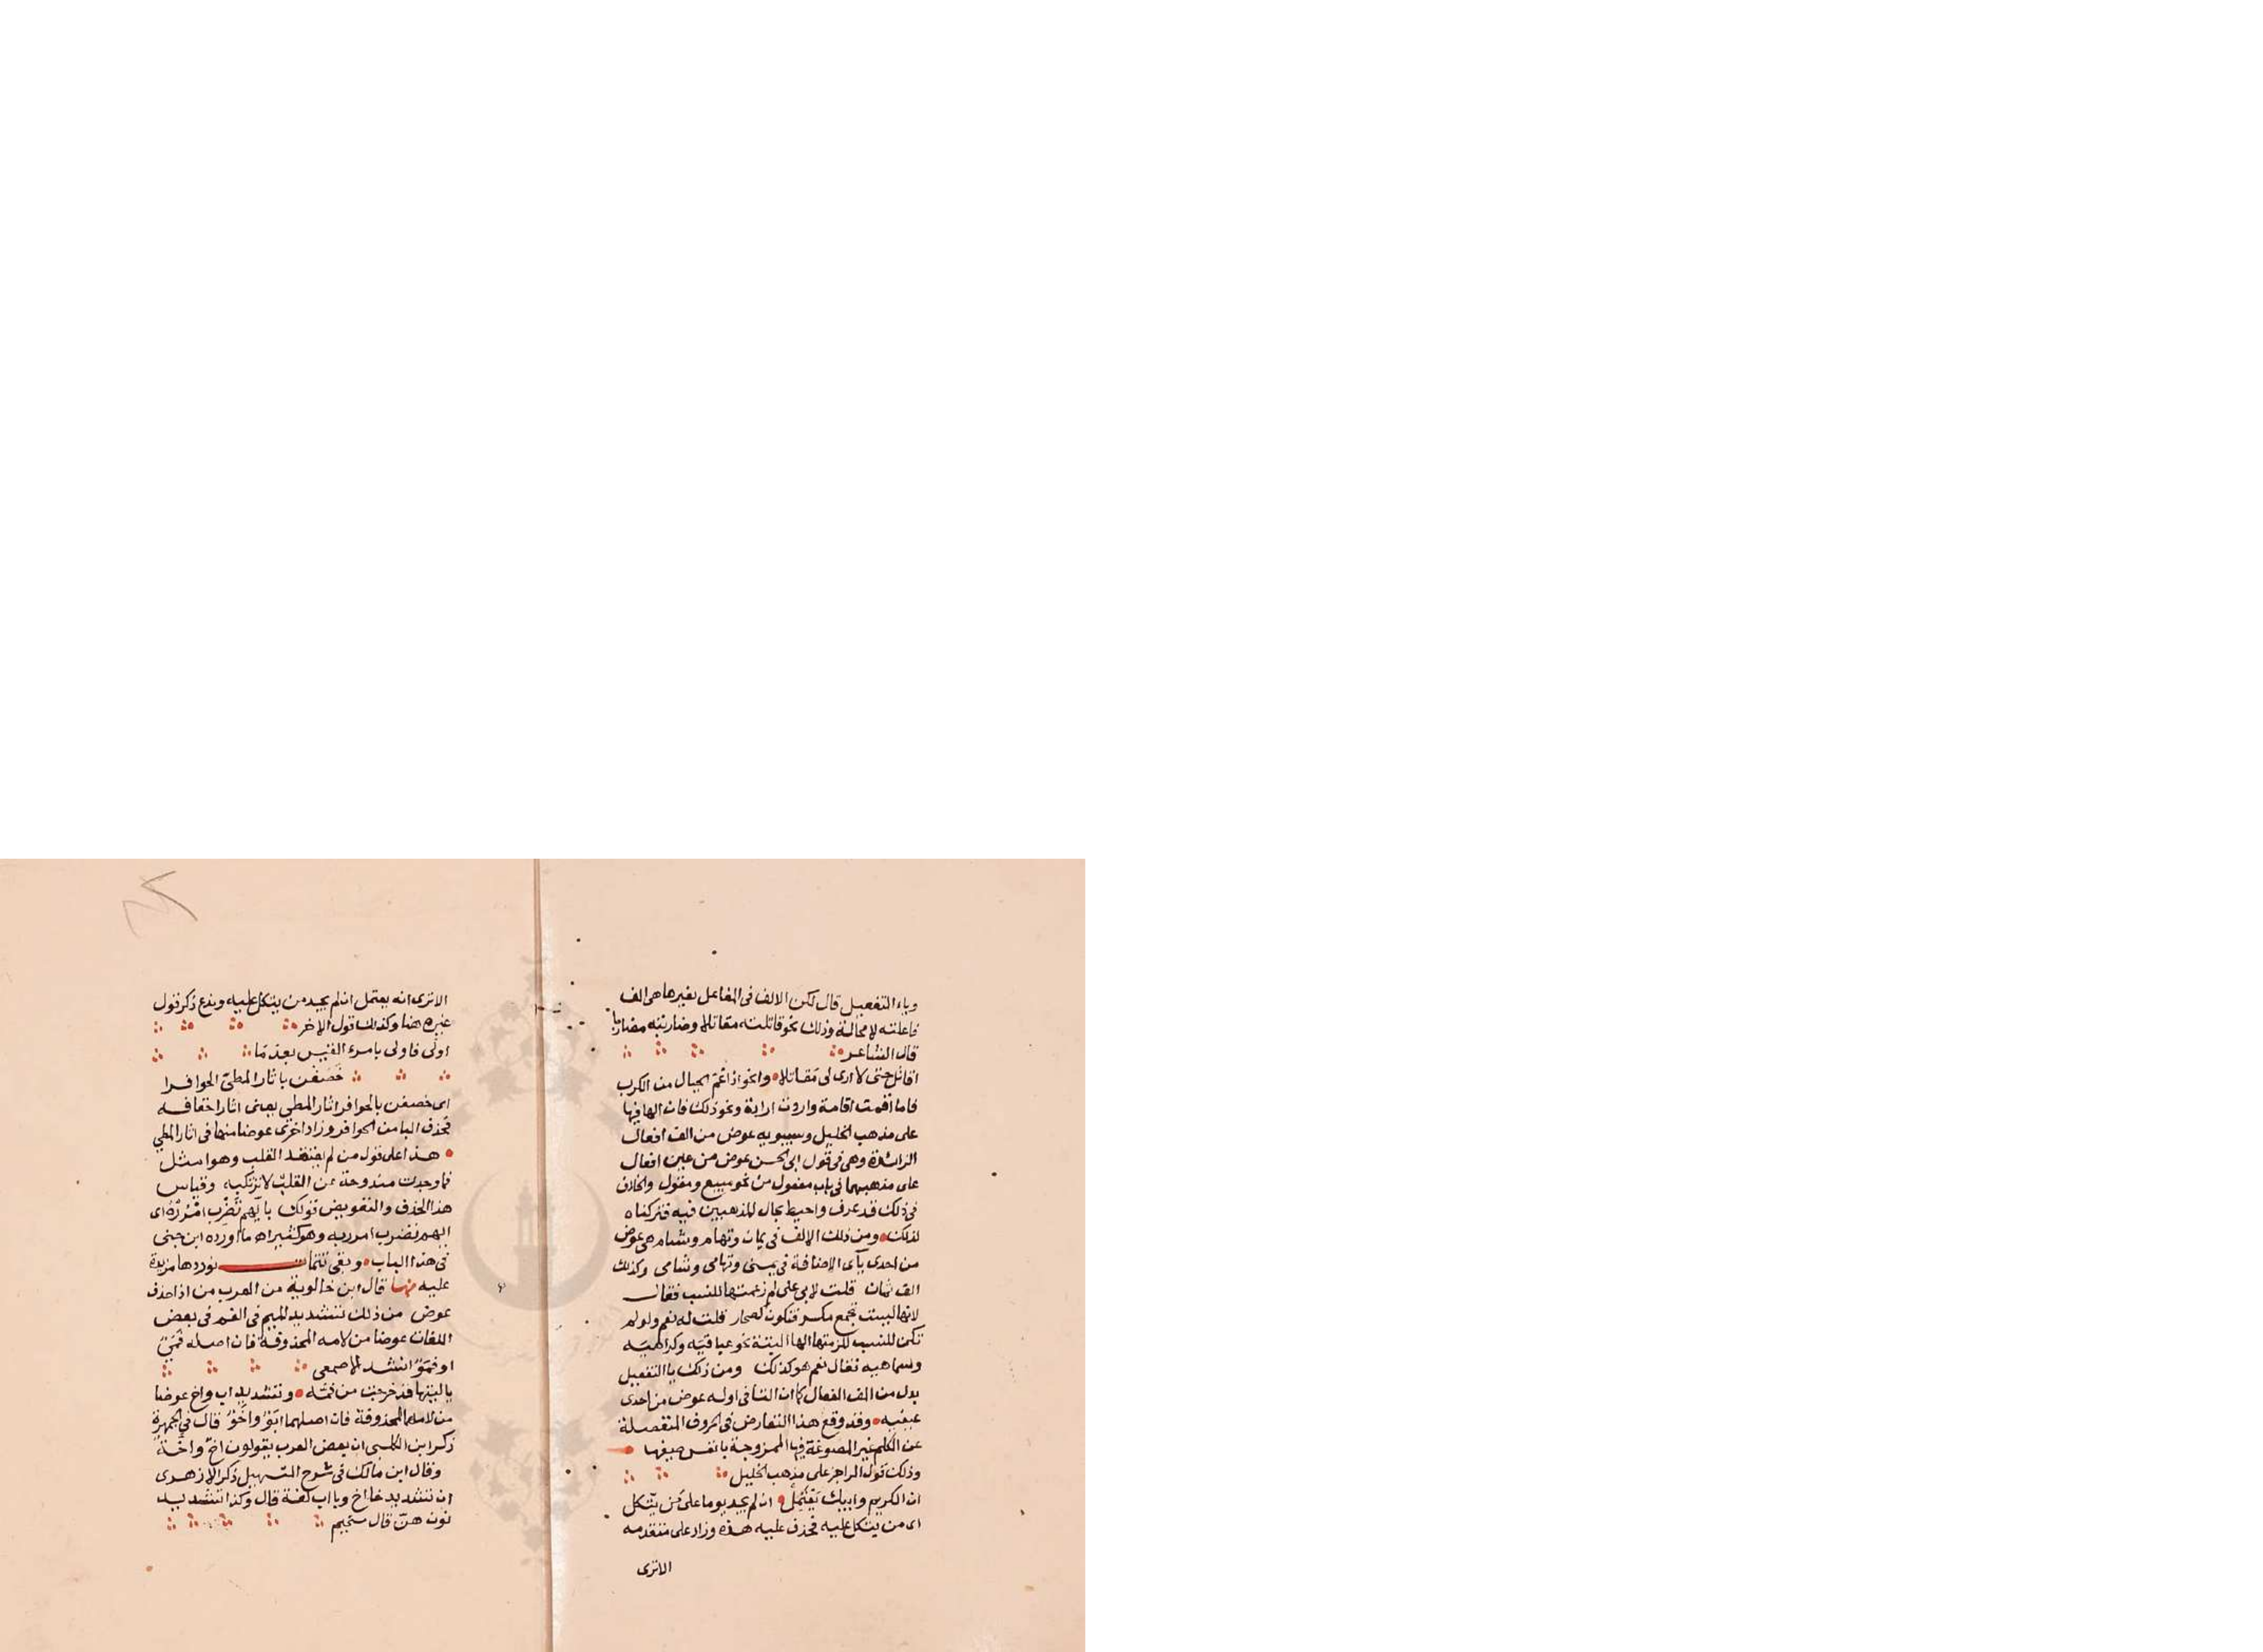 وياء التفعيل قال لكن الالف في المفاعل بغيرها هي الف
فاعلته لا محالة وذلك نحو قاتلته مقاتلا وضاربته مضاربا
قال الشاعر
اقاتل حتى لا ارى لي مقاتلا وانجو اذا غم الجبال من الكرب
فاما اقمت اقامة واروت ارادة ونحو ذلك فان الها فيها
على مذهب الخليل وسيبويه عوض من الف افعال
الزائدة وهي في قول ابي الحسن عوض من عين افعال
على مذهبهما في باب مفعول من نحو مبيع ومقول والخلاف
في ذلك قد عرف واحيط بحال المذهبين فيه فتركناه
لذلك ومن ذلك الالف في يمان وتهام وشام هي عوض
من احدى يآى الاضافة في يمنى وتهامى وشامى وكذلك
الف ثمان قلت لابي على لم زعمتها للنسب فقال
لانها ليست بجمع مكسر فتكون كصحار قلت له نعم ولو لم
تكن للنسب للزمتها الها البتة نحو عباقيه وكراهيه
وسباهيه فقال نعم هو كذلك ومن ذلك يا التفعيل
بدل من الف الفعال كما ان التا في اوله عوض من احدى
عينيه وقد وقع هذا التعارض في الحروف المنفصلة
عن الكلم غير المصوغة فيها الممزوجة بانفس صيغها
وذلك قول الراجز على مذهب الخليل
ان الكريم وابيك يعتمل ان لم يجد يوما على من يتكل
اى من يتكل عليه فحذف عليه هذه وزاد على متقدمه
الاترى
الاترى انه يعتمل ان لم يجد من يتكل عليه وندع ذكر قول
غيره هنا وكذلك قول الاخر
اولى فاولى يامرء القيس بعد ما
خصفن باثار المطى الحوافرا
اى خصفن بالحوافر اثار المطي يعنى اثار اخفافه
فحذف البا من الحوافر وزاد اخرى عوضا منها في اثار المطي
هذا على قول من لم يعتقد القلب وهو امثل
فما وجدت مندوحة عن القلب لا ترتكبه وقياس
هذا الحذف والتعويض قولك بايهم تضرب امرره اى
ايهم تضرب امرر به وهو كثير اه ما اورده ابن جنى
في هذا الباب وبقى تتمات نوردها مزيدة
عليه منها قال ابن خالوية من العرب من اذا حذف
عوض من ذلك تشديد الميم في الفم في بعض
اللغات عوضا من لامه المحذوفة فان اصله فمى
او فمو انشد الاصمعى
ياليتها قد خرجت من فمه وتشديد اب واخ عوضا
من لامهما المحذوفة فان اصلهما ابو واخو قال في الجمهرة
ذكر ابن الكلبى ان بعض العرب يقولون اخ واخة
وقال ابن مالك في شرح التسهيل ذكر الازهرى
ان تشديد خا اخ وبا اب لغة قال وكذا تشديد
نون هن قال سحيم